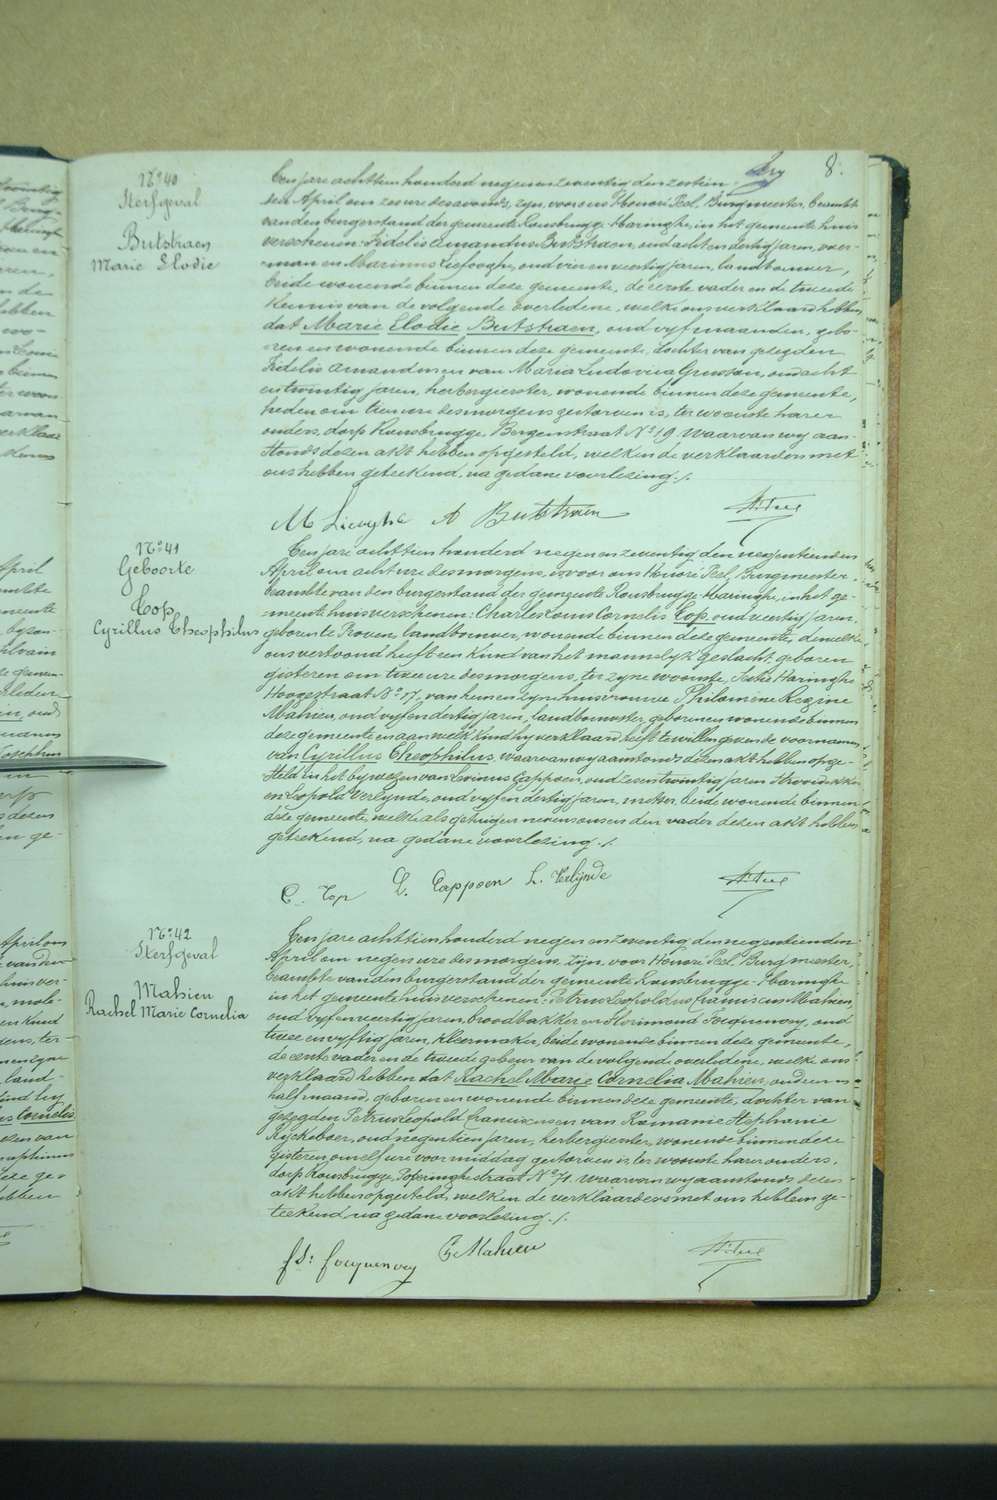 8.
N° 40
Sterfgeval
Butstraen
Marie Elodie
Een jare achttien honderd negen en zeventig den zestien
den April om zes ure des avonds, zijn voor ons Honoré Peel, Burgmeester, beambte
van den burgerstand der gemeente Rousbrugge-Haringhe, in het gemeente huis
verschenen: Fidelis Amandus Butstraen, oud acht en dertig jaren, voer-
man en Marinus Liefooghe, oud vier en veertig jaren, landbouwer,
beide wonende binnen deze gemeente, de eerste vader en de tweede
kennis van de volgende overledene, welke ons verklaard hebben
dat Marie Elodie Butstraen, oud vyf maanden, gebo-
ren en wonende binnen deze gemeente, dochter van gezegden
Fidelis Amandus en van Maria Ludovica oud acht
en twintig jaren, herbergierster, wonende binnen deze gemeente,
heden om tien ure des morgens gestorven is, ter woonste harer
ouders, dorp Rousbrugge, Bergenstraat N° 19. Waarvan wy aan-
stonds dezen akt hebben opgesteld, welken de verklaarders met
ons hebben geteekend, na gedane voorlezing ./.
M Liefooghe A Butstraen H. Peel
N° 41
Geboorte
Top
Cyrillus Theophilus
Een jare achttien honderd negen en zeventig den negentienden
April om acht ure des morgens, is voor ons Honoré Peel, Burgmeester,
beambte van den burgerstand der gemeente Rousbrugge-Haringhe, in het ge-
meente huis verschenen: Charles Louis Cornelis Top, oud veertig jaren,
geboren te Proven, landbouwer, wonende binnen deze gemeente, dewelke
ons vertoond heeft een kind van het mannelyk geslacht, geboren
gisteren om twee ure des morgens, ter zyne woonste, Sectie Haringhe
Hoogestraat N° 17, van hem en zyne huisvrouwe Philomene Regine
Mahieu, oud vyf en dertig jaren, landbouwster, geboren en wonende binnen
deze gemeente en aan welk kind hy verklaard heeft te willen geven de voornamen
van Cyrillus Theophilus, waarvan wy aanstonds dezen akt hebben opge-
steld in het bywezen van Livinus Cappoen, oud zes en twintig jaren
en Leopold Verlynde, oud vyf en dertig jaren, metser, beide wonende binnen
deze gemeente, welke als getuigen nevens ons en den vader dezen akt hebben
geteekend, na gedane voorlezing ./.
C. Top L. Cappoen L. Verlynde H. Peel
N° 42
Sterfgeval
Mahieu
Rachel Marie Cornelia
Een jare achttien honderd negen en zeventig den negentienden
April om negen ure des morgens, zijn, voor Honoré Peel, Burgmeester,
beambte van den burgerstand der gemeente Rousbrugge-Haringhe
in het gemeente huis verschenen: Petrus Leopoldus Franciscus Mahieu,
oud vyf en veertig jaren, broodbakker en Florimond Focquenoey, oud
twee en vyftig jaren, kleermaker, beide wonende binnen deze gemeente,
de eerste vader en de tweede gebuur van de volgende overledene, welke ons
verklaard hebben dat Rachel Marie Cornelia Mahieu, oud een en
half maand, geboren en wonende binnen deze gemeente, dochter van
gezegden Petrus Leopold Franciscus en van Romanie Stephanie
Ryckeboer, oud negentien jaren, herbergierster, wonende binnen deze
gisteren om elf ure voormiddag gestorven is, ter woonste harer ouders,
dorp Rousbrugge, Poperinghestraat N° 71. waarvan wy aanstonds dezen
akt hebben opgesteld, welken de verklaarders met ons hebben ge-
teekend na gedane voorlezing ./.
Fd. Focquenoey C. Mahieu H. Peel